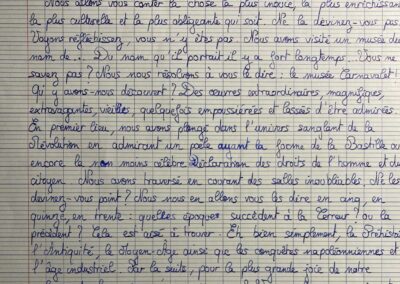 Nous allons vous conter la chose la plus inouïe, la plus enrichissante
la plus culturelle et la plus obligeante qui soit. Ne la devinez-vous pas
Voyons réfléchissez, vous n'y êtes pas. Nous avons visité un musée du
nom de... Du nom qu'il portait il y a fort longtemps. Vous ne
savez pas ? Nous nous résolvons à vous le dire : le musée Carnavalet !
Qu'y avons-nous découvert ? Des œuvres extraordinaires, magnifiques,
extravagantes, vieilles, quelquefois empoussiérées et lassées d'être admirées.
En premier lieu, nous avons plongé dans l'univers sanglant de la
Révolution en admirant un poêle ayant la forme de la Bastille ou
encore la non moins célèbre Déclaration des droits de l'homme et du
citoyen. Nous avons traversé en courant des salles inoubliables. Ne les
devinez-vous point ? Nous nous en allons vous les dire en cinq, en
quinze, en trente : quelles époques succèdent à la Terreur ? ou la
précèdent ? Cela est aisé à trouver. Eh bien simplement, la Préhistoire
l'Antiquité, le Moyen-Âge ainsi que les conquêtes napoléoniennes et
l'âge industriel. Par la suite, pour la plus grande joie de notre